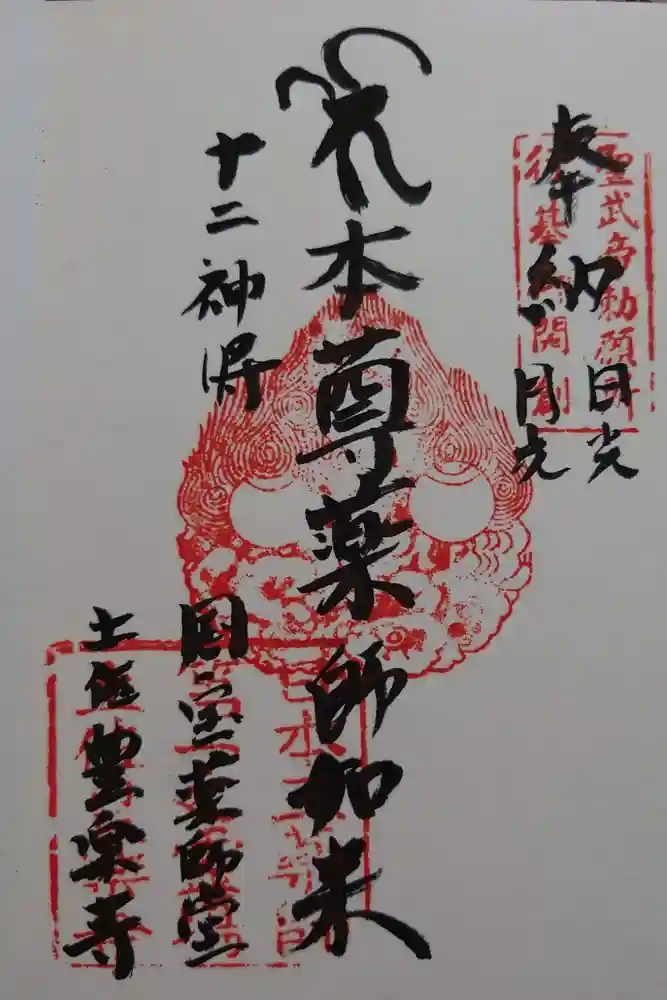 奉納
日光
月光
聖武帝勅願
基
開創
本尊薬師如来
十二神将
国宝薬師堂
土佐豊楽寺